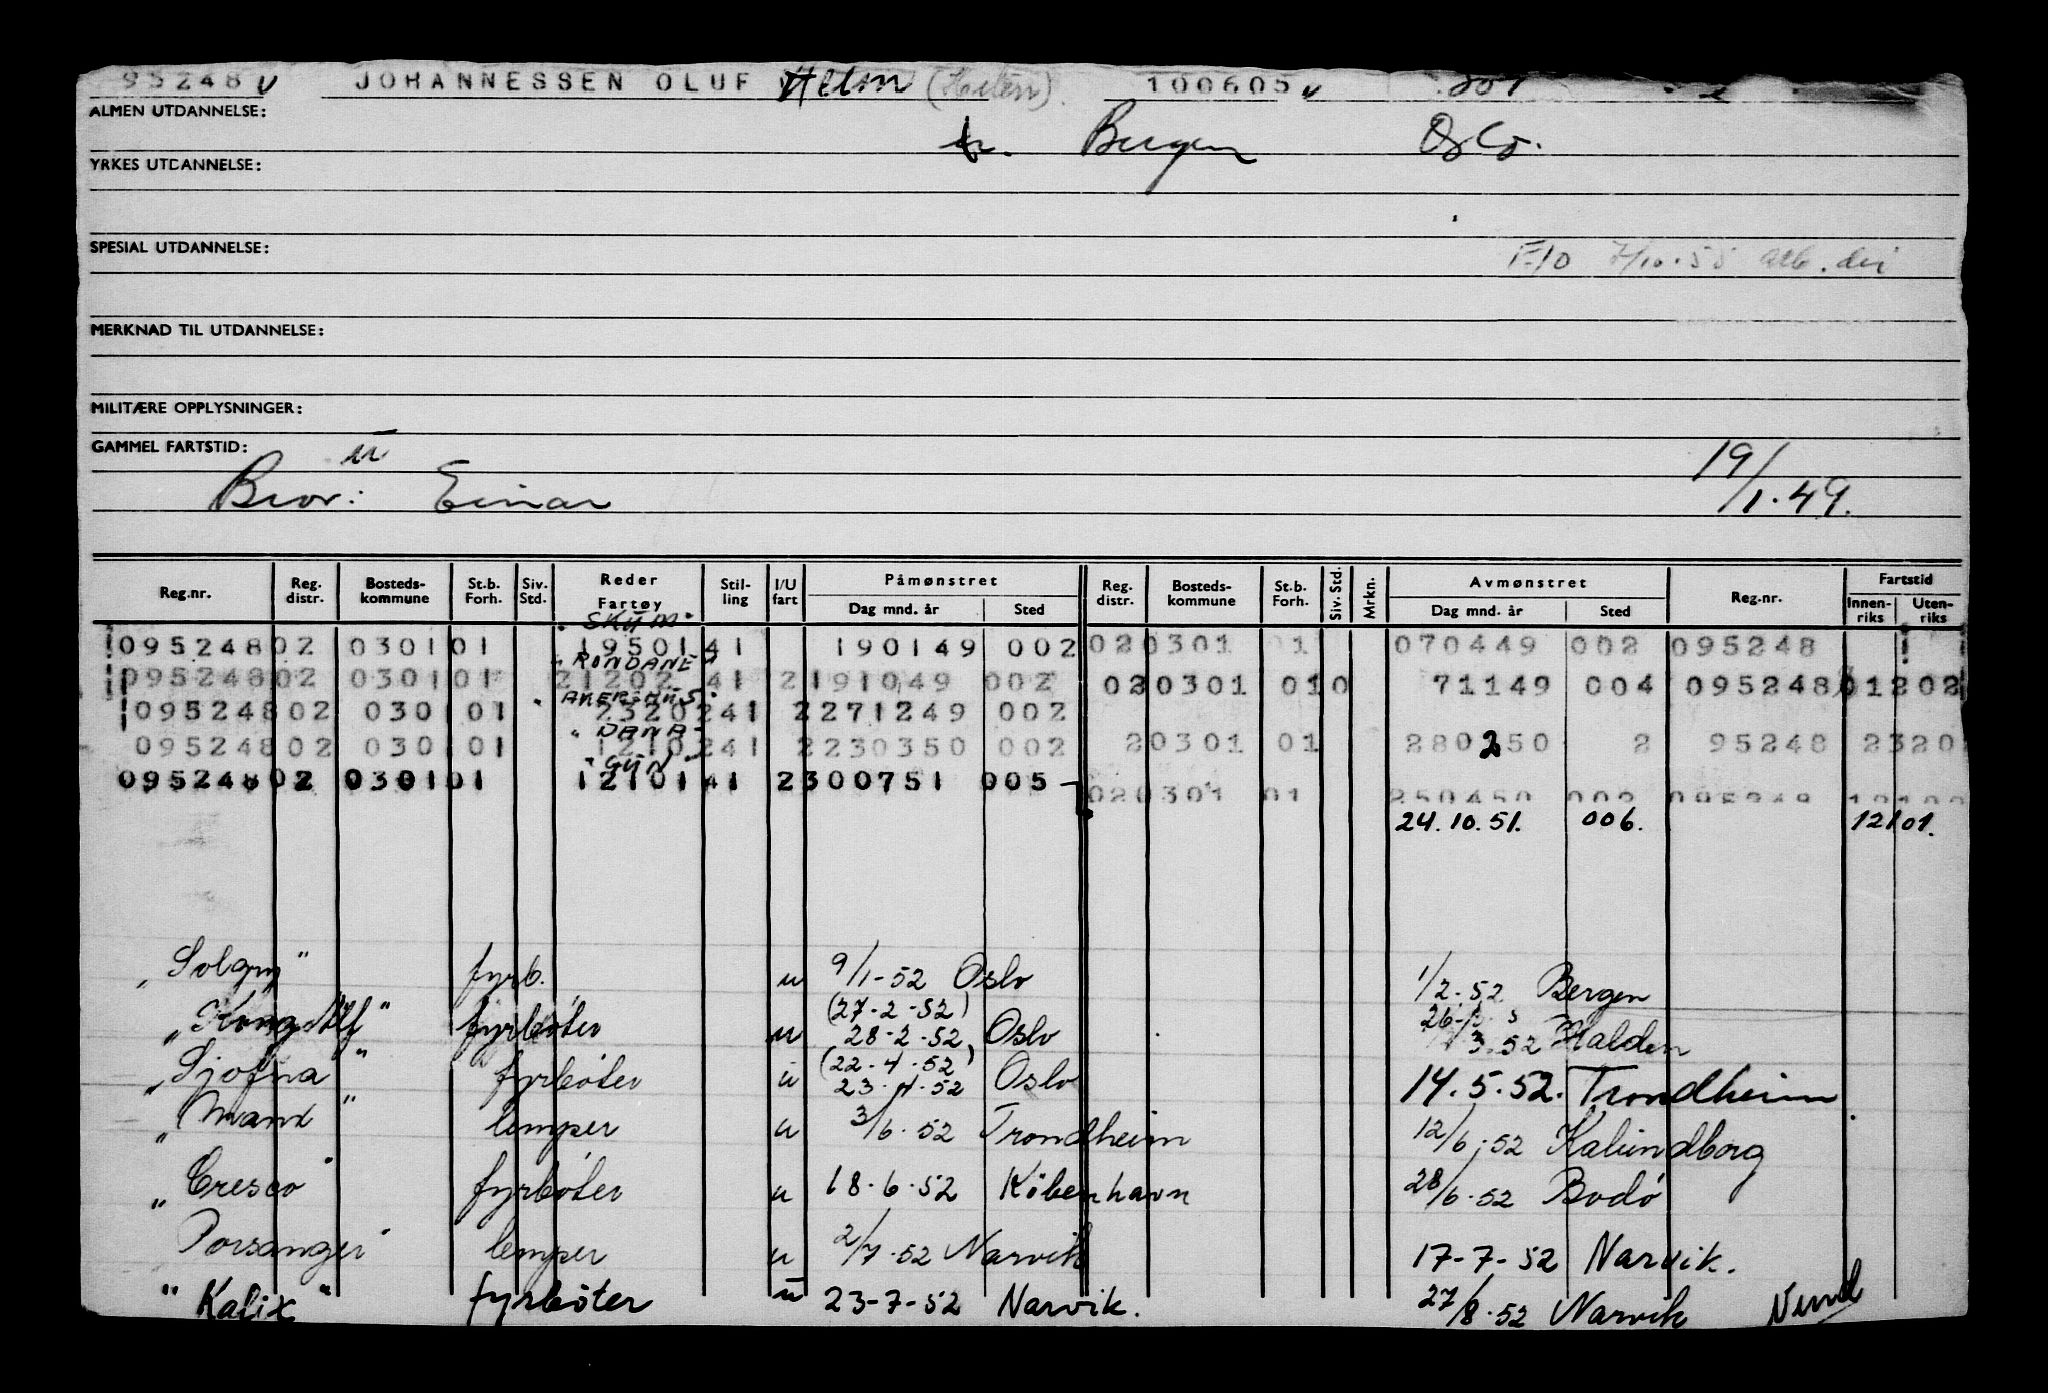 95248 v JOHANNESSEN OLUF (Helen). 100605 v
ALMEN UTDANNELSE:
Bergen Oslo.
YRKES UTDANNELSE:
SPESIAL UTDANNELSE:
7/10.55 arb.
MERKNAD TIL UTDANNELSE:
MILITÆRE OPPLYSNINGER:
GAMMEL FARTSTID:
u
Bror: Einar 19/1.49.
Reg.nr. Reg. distr. Bosteds-kommune St.b. Forh. Siv. Std. Reder Fartøy Stil-ling I/U fart Påmønstret Dag mnd. år Sted Reg. distr. Bosteds-kommune St.b. Forh. Siv. Std. Mrkn. Avmønstret Dag mnd. år Sted Reg.nr. Fartstid Innen-riks Uten-riks
"SKUM"
095248 02 0301 01 19501 41 190149 002 02 0301 01 070449 002 095248
"RONDANE"
095248 02 0301 01 21202 41 2 191049 002 02 0301 01 0 71149 004 095248 01202
"AKERSHUS"
095248 02 030 01 23202 41 2 271249 002
"DANA"
095248 02 030 01 12102 41 2 230350 002 2 0301 01 280250 2 95248 2320
"GUN"
095248 02 0301 01 12101 41 2 300751 005
020301 01 250450 002 095248
24.10.51. 006. 12101.
"Solgry" fyrb. u 9/1-52 Oslo 1/2.52 Bergen
(27-2-52)
"Kong Alf" fyrbøter u 28-2-52 Oslo 3.52 Halden
(22.4.52)
"Sjofna" fyrbøter u 23.4.52 Oslo 14.5.52. Trondheim
lemper u 3/6.52 Trondheim 12/6.52 Kalundborg
"Cresco" fyrbøter u 18.6.52 København 28/6.52 Bodø
Porsanger lemper u 2/7.52 Narvik 17-7-52 Narvik.
"Kalix" fyrbøter u 23-7-52 Narvik. 27/8.52 Narvik